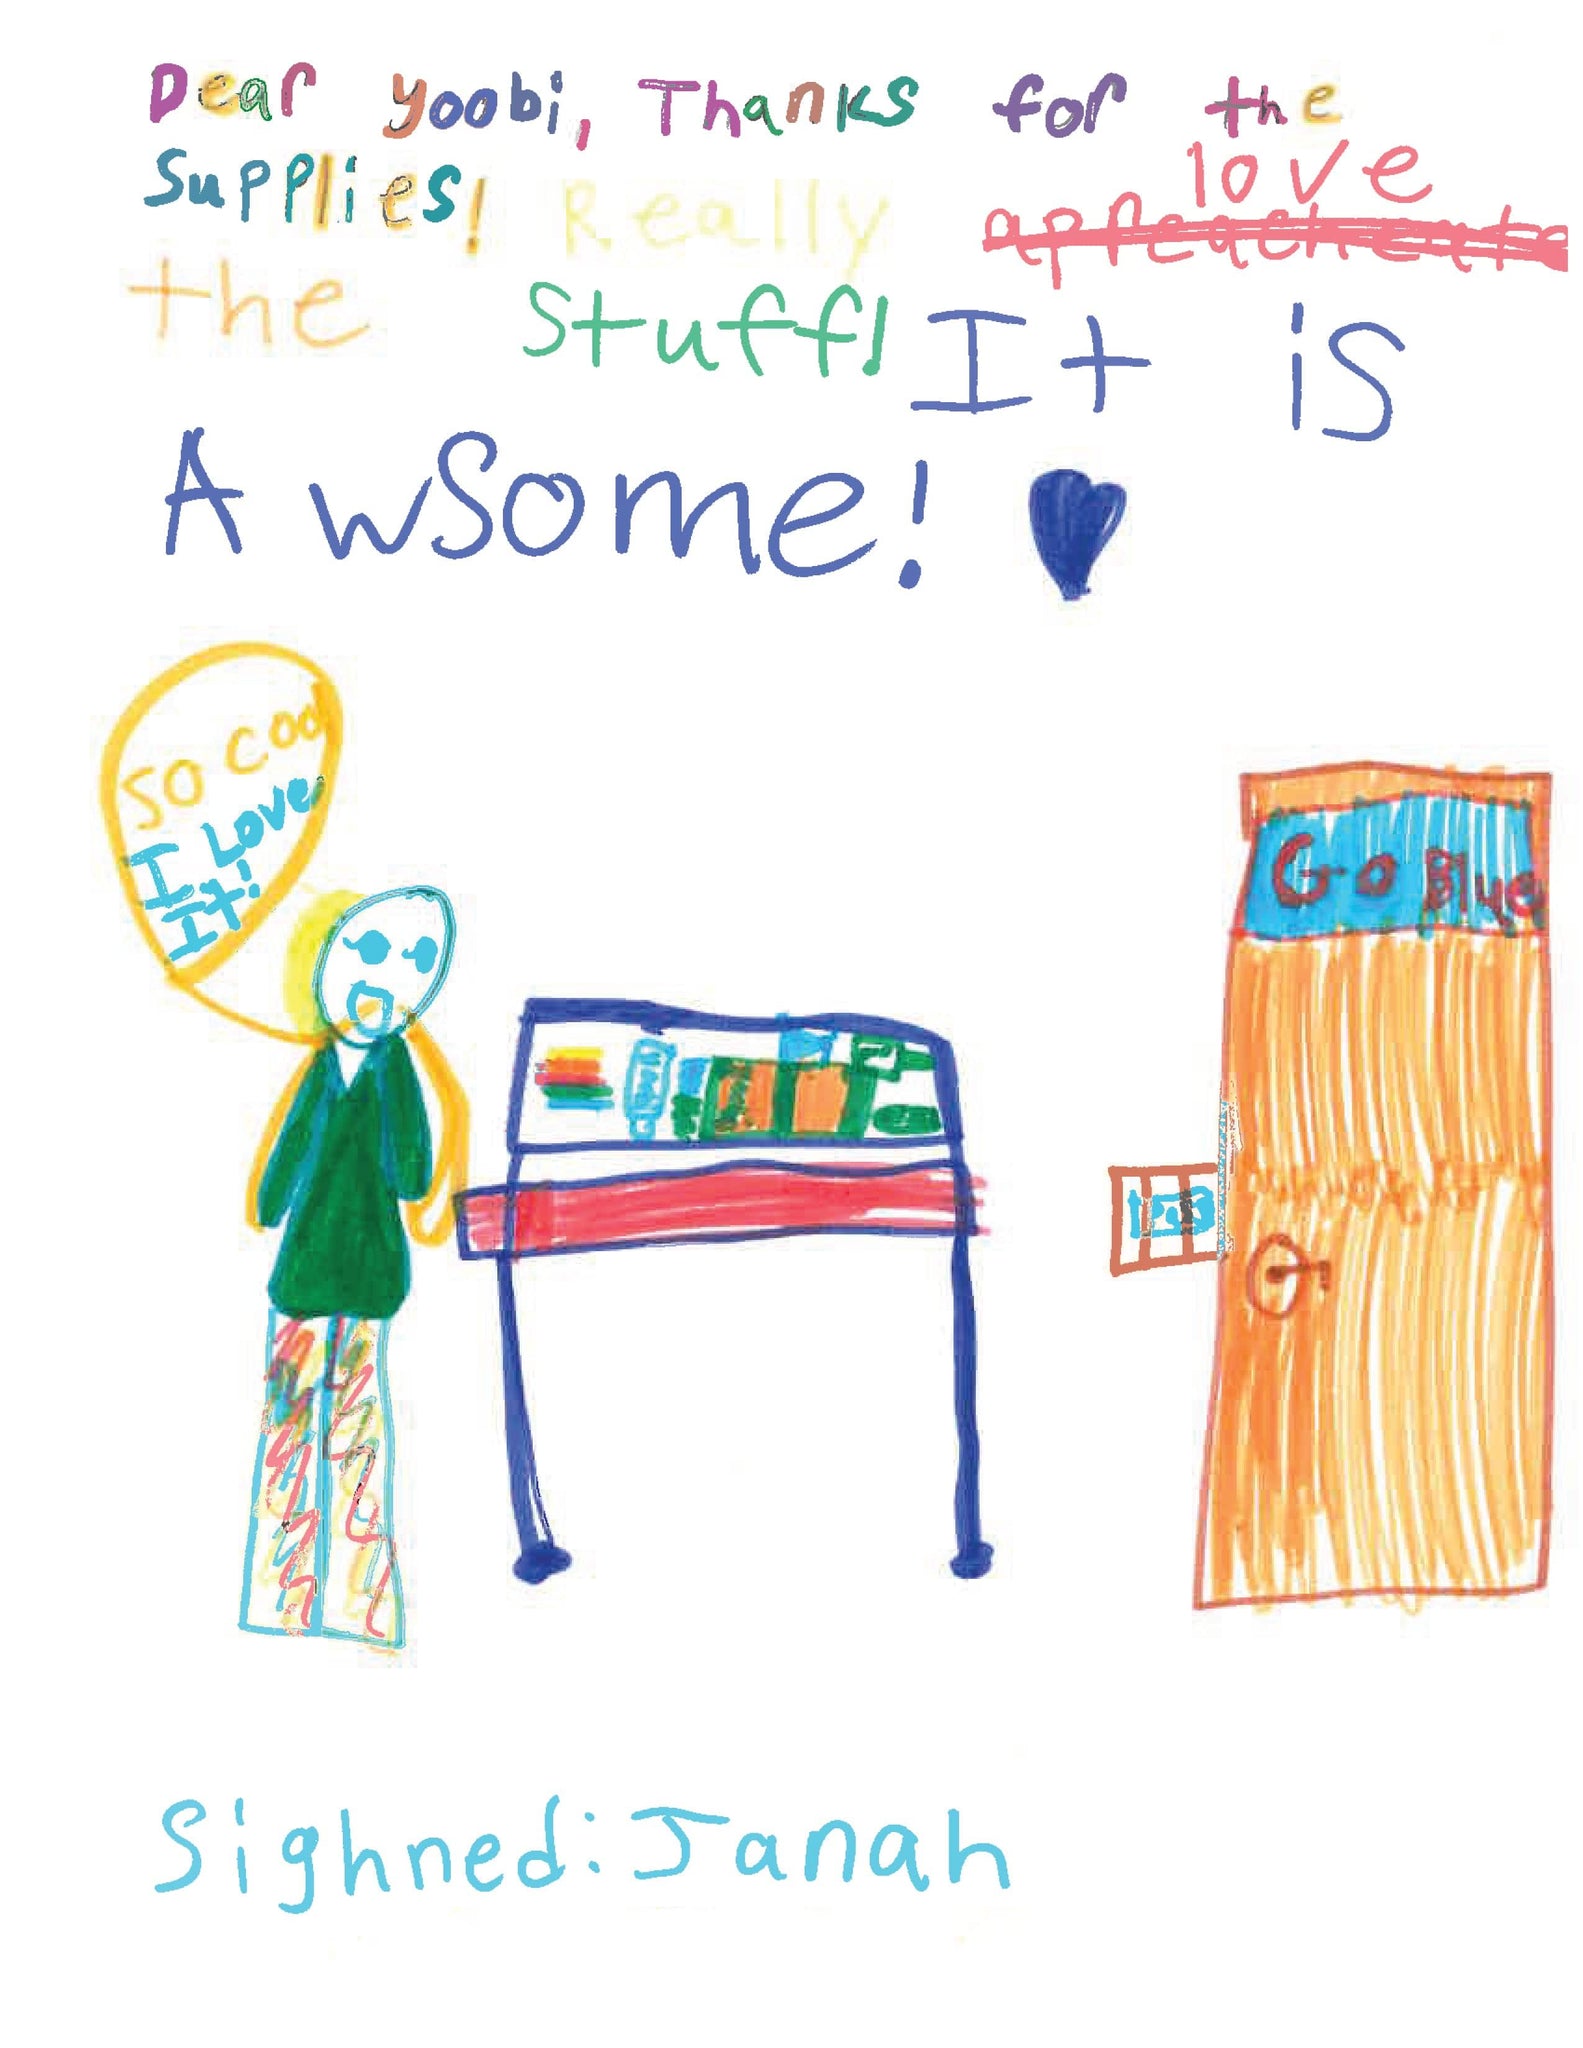 Dear Yoobi, Thanks for the
Supplies! Really love
the Stuff! It is
Awsome!
So Coo
I Love
It!
Go Blue
Sighned: Janah